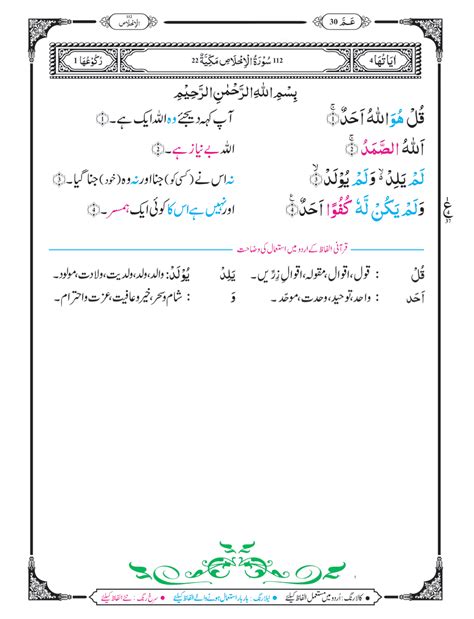 عَمَّ 30 الْإِخْلَاص 112
اٰیَاتُهَا 4 112 سُوْرَۃُ الْاِخْلَاصِ مَكِّيَّةٌ 22 رُكُوْعُهَا 1
بِسْمِ اللّٰهِ الرَّحْمٰنِ الرَّحِيْمِ
قُلْ هُوَ اللّٰهُ اَحَدٌ ۚ﴿1﴾ آپ کہہ دیجئے وہ اللہ ایک ہے۔ ﴿1﴾
اَللّٰهُ الصَّمَدُ ۚ﴿2﴾ اللہ بے نیاز ہے۔ ﴿2﴾
لَمْ يَلِدْ ۙ۬ وَلَمْ يُوْلَدْ ۙ﴿3﴾ نہ اس نے (کسی کو) جنا اور نہ وہ (خود) جنا گیا۔ ﴿3﴾
وَلَمْ يَكُنْ لَّهٗ كُفُوًا اَحَدٌ ﴿4﴾ اور نہیں ہے اس کا کوئی ایک ہمسر۔ ﴿4﴾
ع
37
قرآنی الفاظ کے اردو میں استعمال کی وضاحت
قُلْ : قول، اقوال، مقولہ، اقوالِ زرّیں۔ يَلِدْ يُوْلَدْ : والد، ولد، ولدیت، ولادت، مولود۔
اَحَد : واحد، توحید، وحدت، موحّد۔ وَ : شام و سحر، خیر و عافیت، عزت و احترام۔
کالا رنگ : اُردو میں مستعمل الفاظ کیلئے نیلا رنگ : بار بار استعمال ہونے والے الفاظ کیلئے سرخ رنگ : نئے الفاظ کیلئے